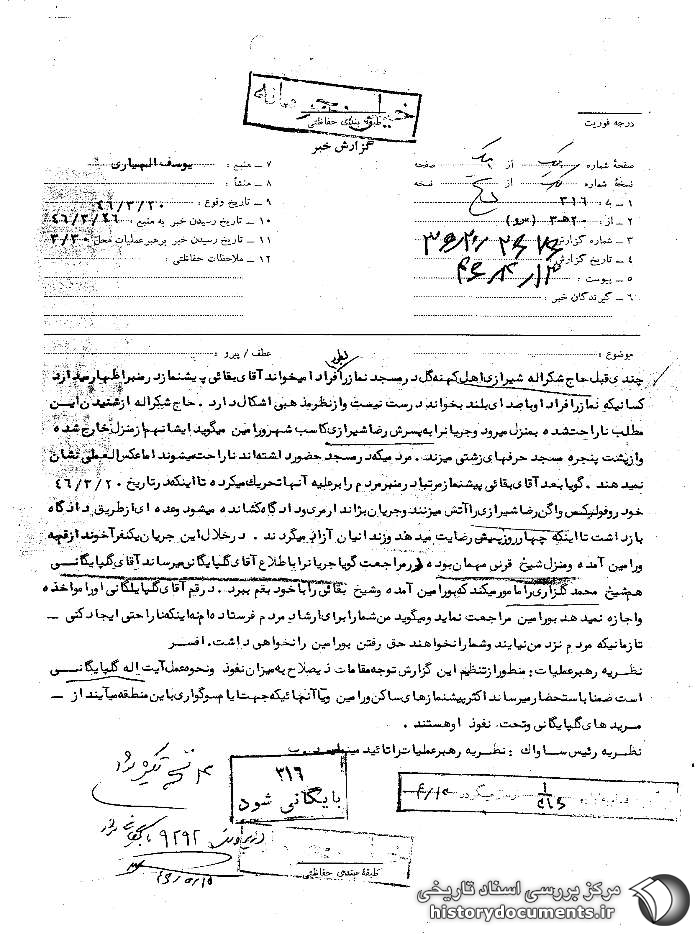 خیلی محرمانه
طبقه بندی حفاظتی
درجه فوریت
گزارش خبر
صفحه شماره یک از یک صفحه
نسخهٔ شماره از نسخه
۱ – به ۳۱۶
۲ – از: ۲۰ه۳
۳ – شماره گزارش
۴ – تاریخ گزارش
۵ – پیوست:
۶ – گیرندگان خبر:
۷ – منبع: یوسف الهیاری
۸ – منشأ:
۹ – تاریخ وقوع: ۴۶/۳/۲۰
۱۰ – تاریخ رسیدن خبر به منبع: ۴۶/۳/۲۶
۱۱ – تاریخ رسیدن خبر برهبر عملیات محل ۳/۳۰
۱۲ – ملاحظات حفاظتی:
موضوع: عطف / پیرو:
چندی قبل حاج شکراله شیرازی اهل کهنه گل در مسجد نماز را فرادا میخواند آقای بقائی پیشنماز در منبر اظهار میدارد
کسانیکه نماز را فرادا و با صدای بلند بخواند درست نیست و از نظر مذهبی اشکال دارد . حاج شکراله از شنیدن این
مطلب ناراحت شده بمنزل میرود و جریانرا به پسرش رضا شیرازی کاسب شهر ورامین میگوید ایشانهم از منزل خارج شده
و از پشت پنجره مسجد حرفهای زشتی میزند . مردمیکه در مسجد حضور داشته‌اند ناراحت میشوند اما عکس العملی نشان
نمیدهند . گویا بعد آقای بقائی پیشنماز مرتبا در منبر مردم را بر علیه آنها تحریک میکرده تا اینکه در تاریخ ۴۶/۳/۲۰
خودرو فولکس واگن رضا شیرازی را آتش میزنند و جریان بژاندارمری و دادگاه کشانده میشود وعده ای از طریق دادگاه
بازداشت تا اینکه چهار روز پیش رضایت میدهد و زندانیان آزاد میگردند . در خلال این جریان یکنفر آخوند از قم به
ورامین آمده و منزل شیخ قرنی مهمان بوده در مراجعت گویا جریانرا باطلاع آقای گلپایگانی میرساند آقای گلپایگانی
هم شیخ محمد گلزاری را مامور میکند که بورامین آمده و شیخ بقائی را با خود بقم ببرد . در قم آقای گلپایگانی اورا مواخذه
و اجازه نمیدهد بورامین مراجعت نماید و میگوید من شما را برای ارشاد مردم فرستاده‌ام نه اینکه ناراحتی ایجاد کنی –
تا زمانیکه مردم نزد من نیایند و شما را نخواهند حق رفتن بورامین را نخواهی داشت. افسر
نظریه رهبر عملیات : منظور از تنظیم این گزارش توجه مقامات ذیصلاح به میزان نفوذ و نحوه عمل آیت اله گلپایگانی
است ضمنا باستحضار میرساند اکثر پیشنمازهای ساکن ورامین و یا آنهائیکه جهت ایام سوگواری باین منطقه میآیند از –
مریدهای گلپایگانی و تحت نفوذ او هستند .
نظریه رئیس ساواک : نظریه رهبر عملیات را تائید مینماید
۳۱۶
بایگانی شود
۹۲۹۲
طبقهٔ بندی حفاظتی
مرکز بررسی اسناد تاریخی
historydocuments.ir